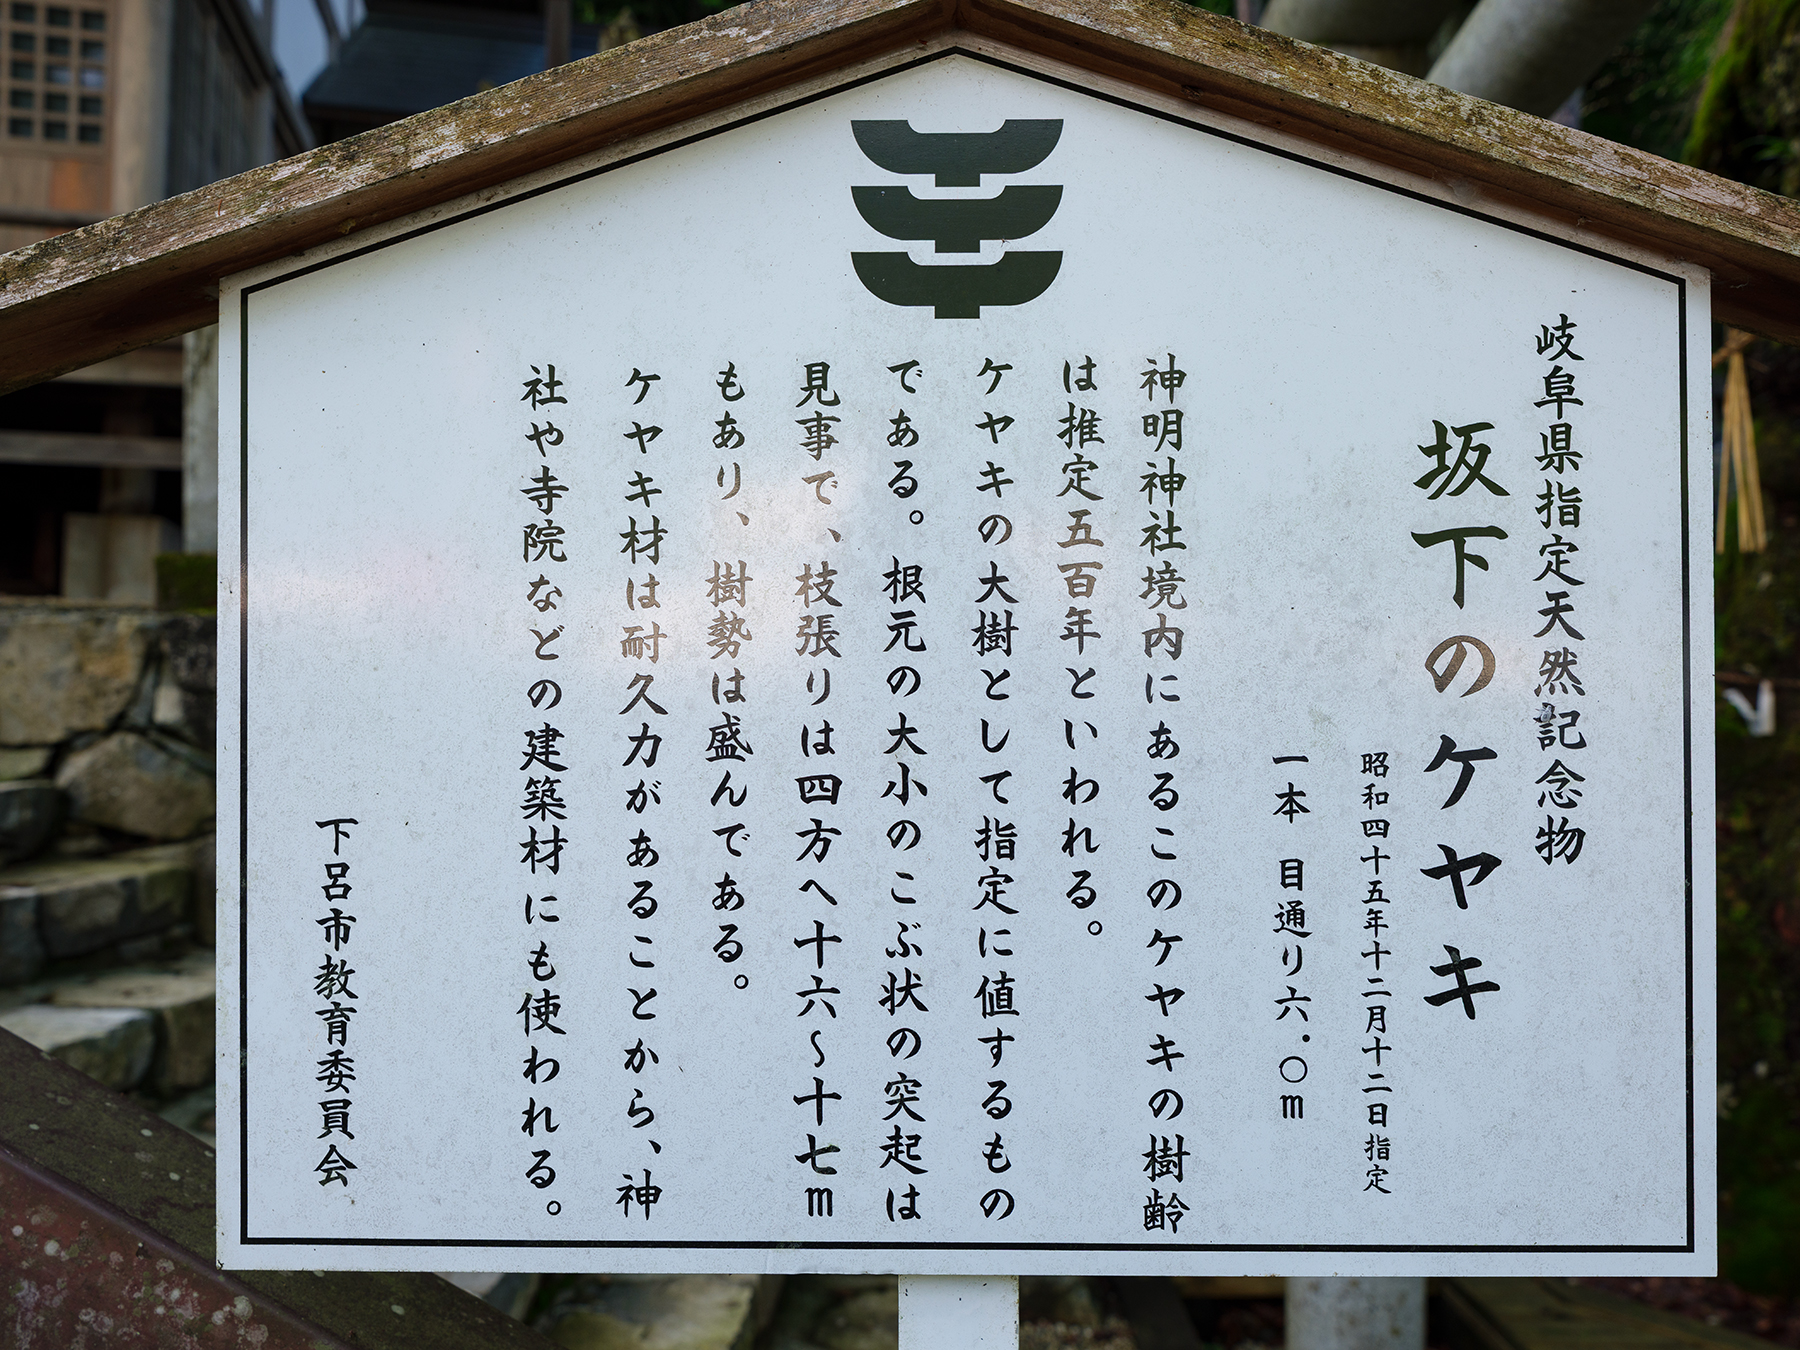 岐阜県指定天然記念物
坂下のケヤキ
昭和四十五年十二月十二日指定
一本 目通り六・〇m
神明神社境内にあるこのケヤキの樹齢
は推定五百年といわれる。
ケヤキの大樹として指定に値するもの
である。根元の大小のこぶ状の突起は
見事で、枝張りは四方へ十六～十七m
もあり、樹勢は盛んである。
ケヤキ材は耐久力があることから、神
社や寺院などの建築材にも使われる。
下呂市教育委員会